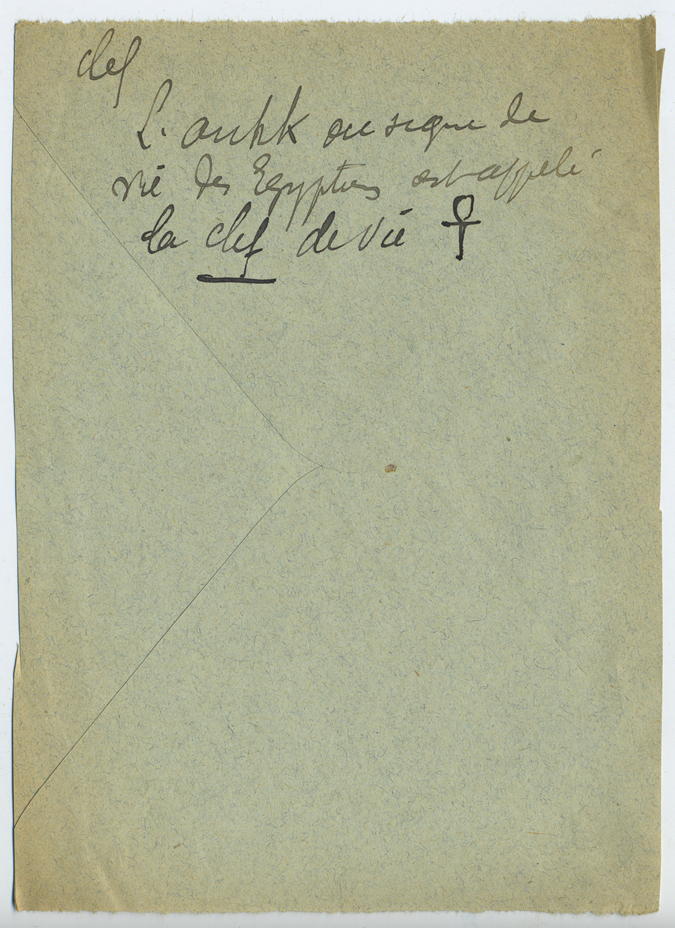 clef
L'ankh ou signe de
vie des Egyptiens est appelé
la clef de vie ☥